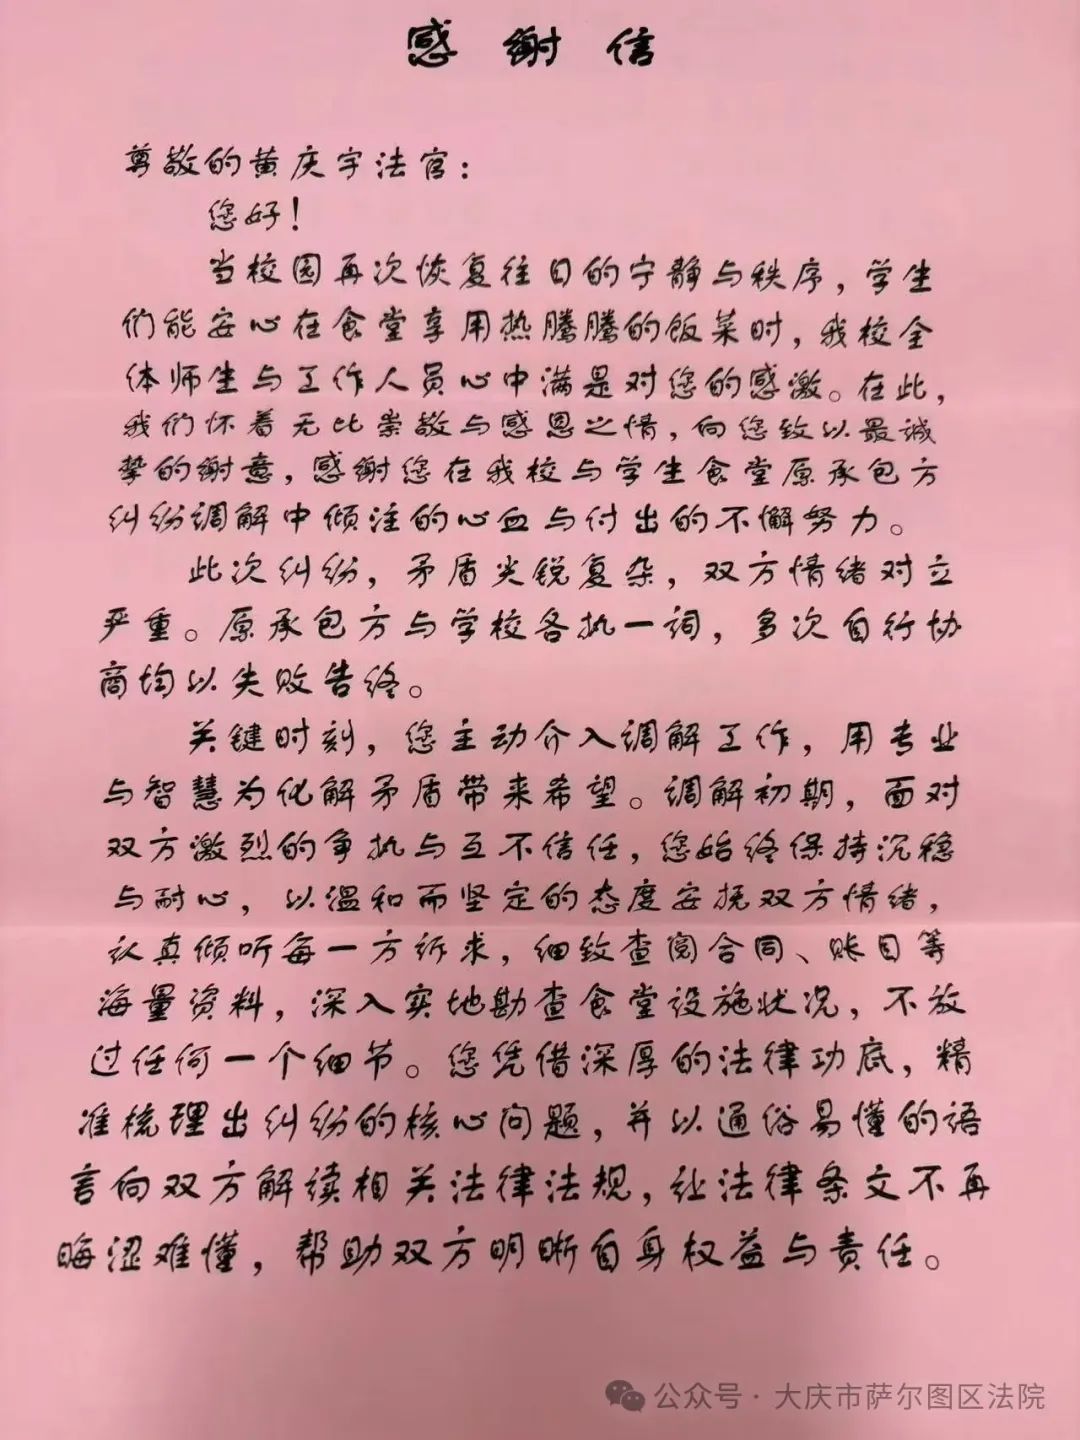 感谢信
尊敬的黄庆宇法官：
您好！
当校园再次恢复往日的宁静与秩序，学生
们能安心在食堂享用热腾腾的饭菜时，我校全
体师生与工作人员心中满是对您的感激。在此，
我们怀着无比崇敬与感恩之情，向您致以最诚
挚的谢意，感谢您在我校与学生食堂原承包方
纠纷调解中倾注的心血与付出的不懈努力。
此次纠纷，矛盾尖锐复杂，双方情绪对立
严重。原承包方与学校各执一词，多次自行协
商均以失败告终。
关键时刻，您主动介入调解工作，用专业
与智慧为化解矛盾带来希望。调解初期，面对
双方激烈的争执与互不信任，您始终保持沉稳
与耐心，以温和而坚定的态度安抚双方情绪，
认真倾听每一方诉求，细致查阅合同、账目等
海量资料，深入实地勘查食堂设施状况，不放
过任何一个细节。您凭借深厚的法律功底，精
准梳理出纠纷的核心问题，并以通俗易懂的语
言向双方解读相关法律法规，让法律条文不再
晦涩难懂，帮助双方明晰自身权益与责任。
公众号·大庆市萨尔图区法院